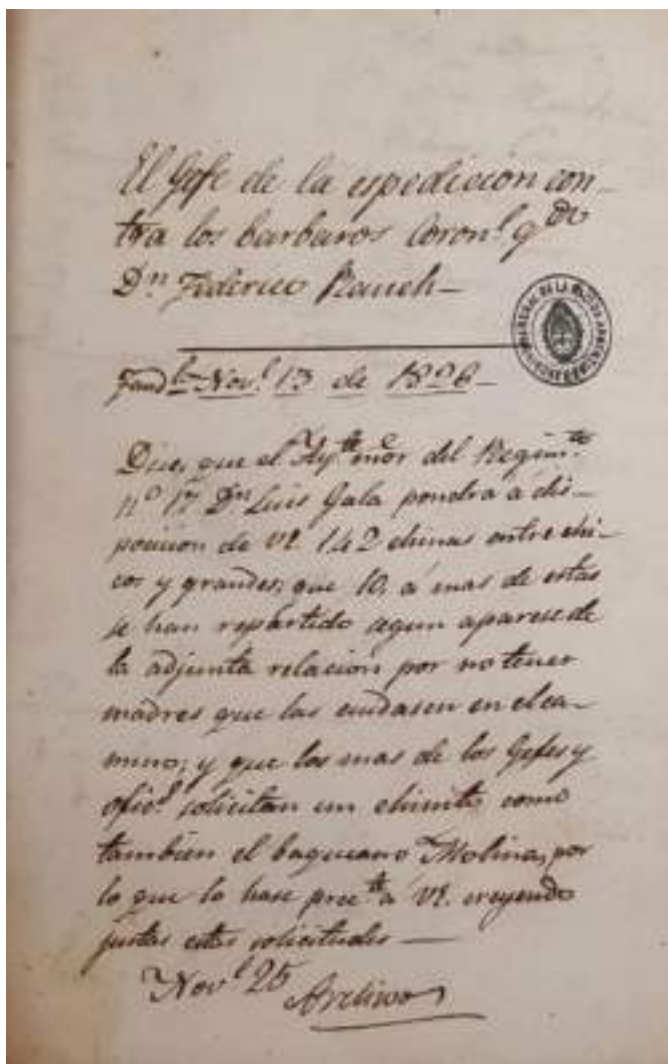 El Gefe de la espedicion con-
tra los barbaros Coron.l g.do
D.n Federico Rauch—
Tand.l Nov.e 13 de 1826—
Dice, que el Ay.te mor del Regim.to
n.o 17 D.n Luis Gala pondra a dis-
posicion de VE. 142 chinas entre chi-
cos y grandes; que 10, á mas de estas
se han repartido segun aparese de
la adjunta relacion por no tener
madres que las cuidasen en el ca-
mino; y que los mas de los Gefes y
ofic.s solicitan un chinito como
tambien el baqueano Molina, por
lo que lo hase pres.te a VE. creyendo
justas estas solicitudes—
Nov.e 25
Archivo